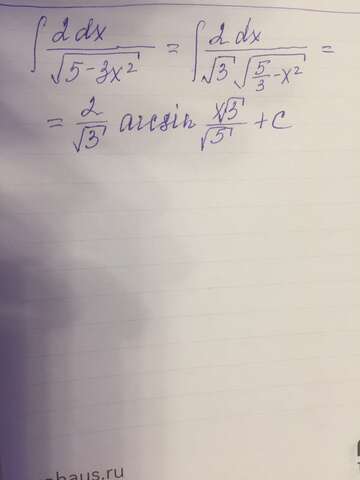 ∫ 2dx/√(5-3x²) = ∫ 2dx/(√3 √(5/3-x²)) =
= 2/√3 arcsin x√3/√5 + C
haus.ru